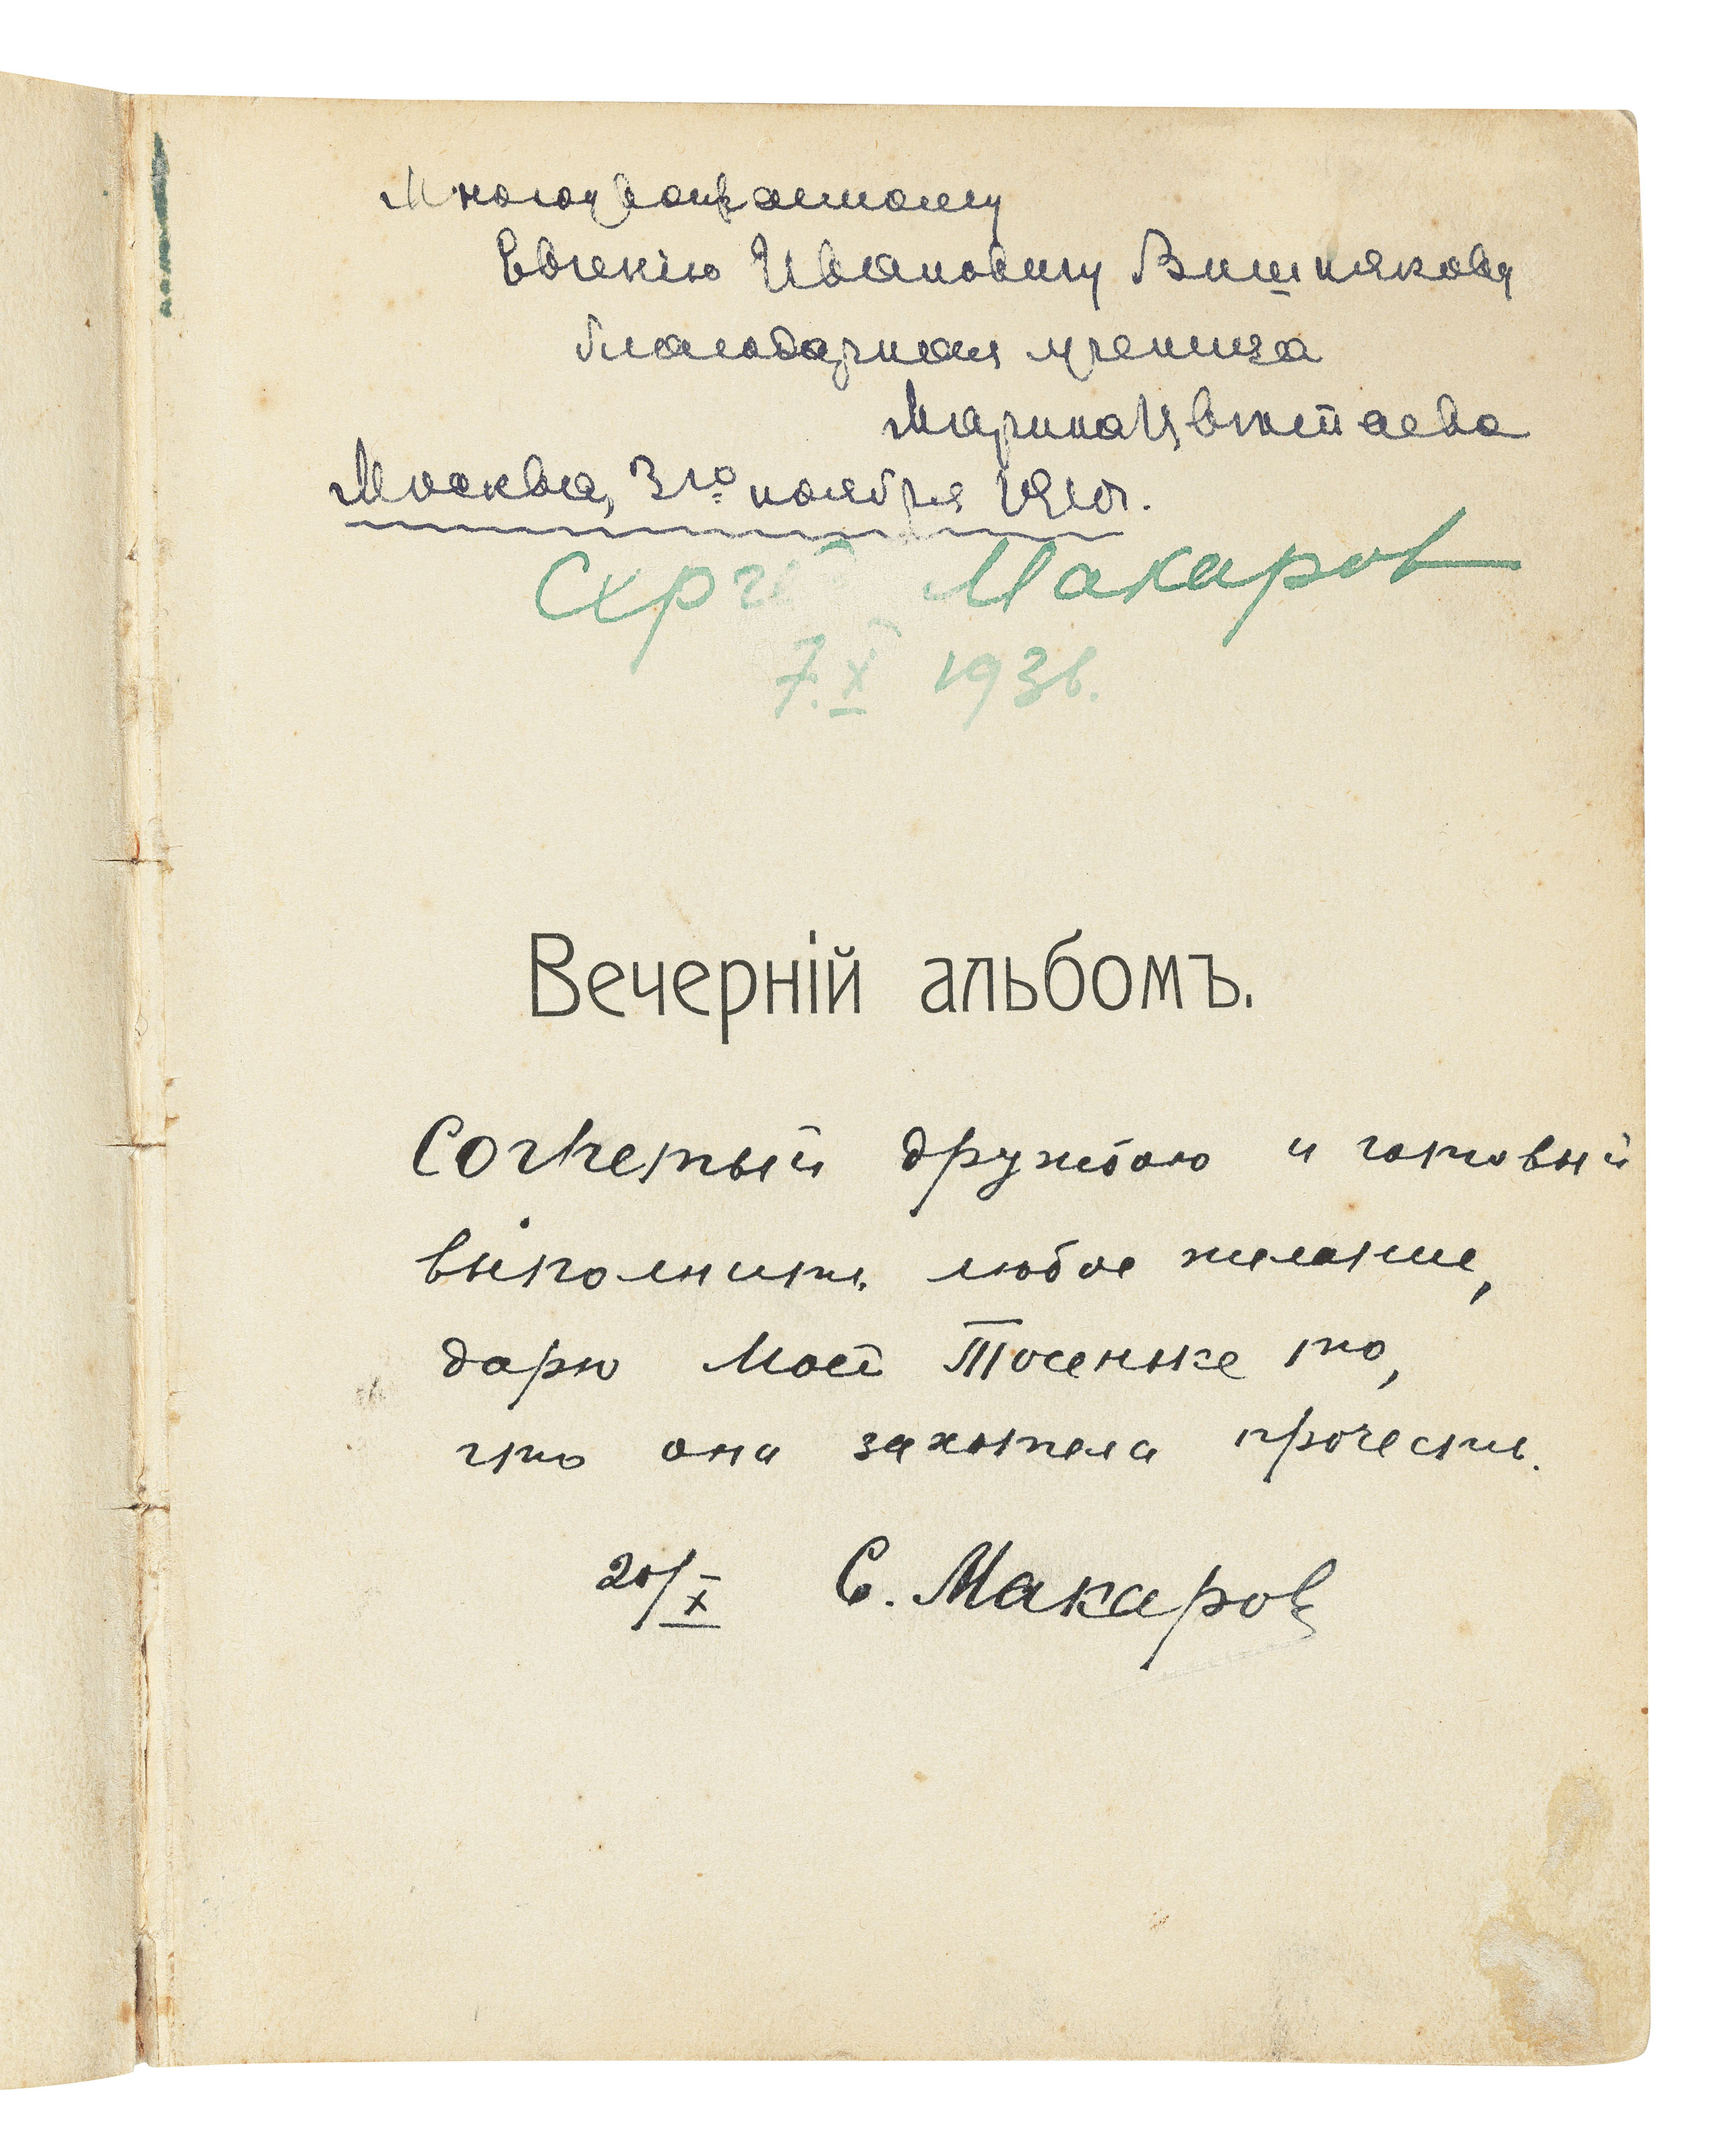 Многоуважаемому
Евгенію Ивановичу Вишнякову
благодарная ученица
Марина Цвѣтаева
Москва, 3го ноября 1910г.
Сергей Макаров
7.X 193
Вечерній альбомъ.
дружбою и готовый
выполнить любое желание,
дарю моей Тосеньке то,
что она захотела прочесть.
20/X С. Макаров